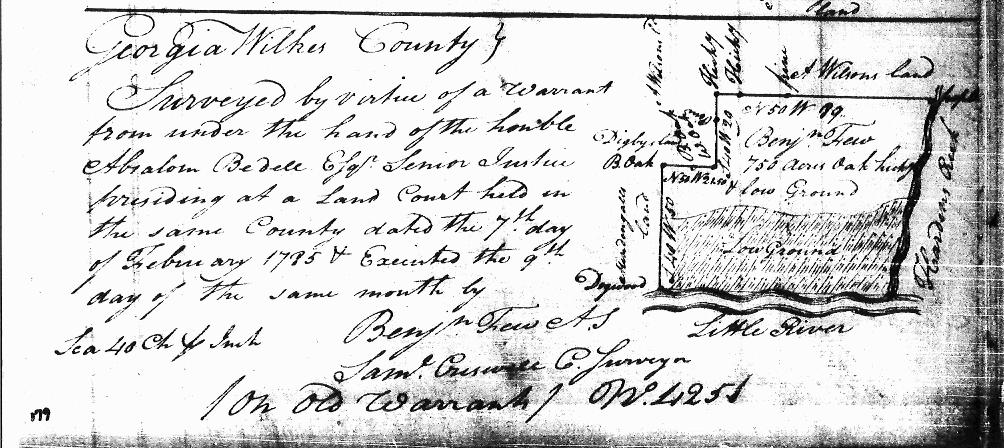 land
Georgia Wilkes County }
Surveyed by virtue of a Warrant
from under the hand of the honble
Absalom Bedell Esqr. Senior Justice
presiding at a Land Court held in
the same County dated the 7th day
of February 1785 & Executed the 9th
day of the same month by
Benjn Few A S
Saml. Creswell C. Surveyr
Sca 40 Ch Inch
/ On Old Warrants / No. 4251
179
Hicky
Hicky
pine
A Wilsons land
N 50 W 89
Benjn Few
750 Acres Oak hicky
& low Ground
B. Oak
N 50 W 31.50
S 40 W 20
S 40 W 50
land
Low Ground
Dogwood
Little River